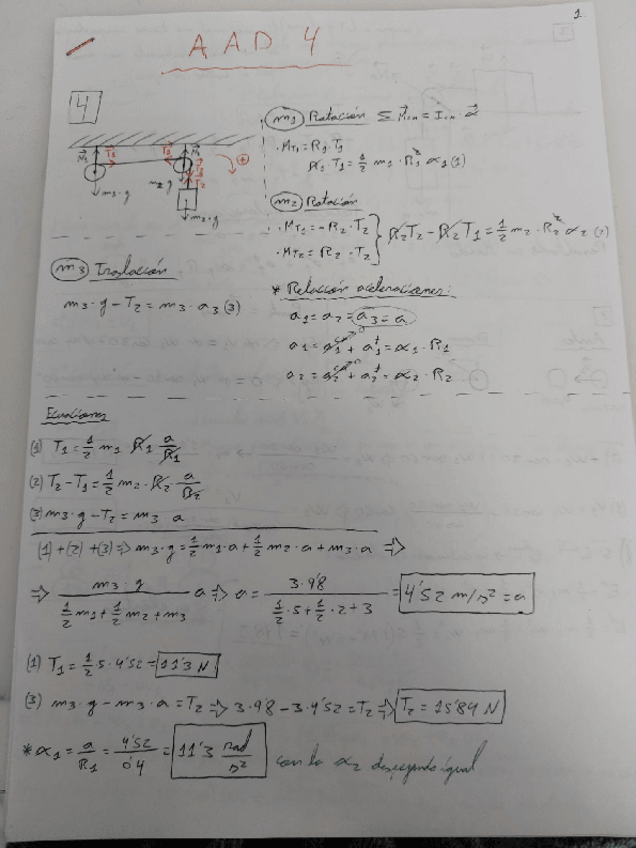 1
A A D 4
4
m1 Rotación ΣM = I · α
· MT1 = R1 · T1
R1 · T1 = 1/2 m1 · R1² α1 (1)
M1 T1 T2 m2·g
m3·g T2 m3·g
m2 Rotación
· MT1 = -R2 · T2
· MT2 = R2 · T2
R2T2 - R2T1 = 1/2 m2 · R2² α2 (2)
m3 Traslación
m3·g - T2 = m3·a3 (3)
* Relación aceleraciones:
a1 = a2 = a3 = a
a1 = a1 + a1t = α1 · R1
a2 = a2 + a2t = α2 · R2
Ecuaciones
(1) T1 = 1/2 m1 R1 a/R1
(2) T2 - T1 = 1/2 m2 · R2 · a/R2
(3) m3·g - T2 = m3 a
(1) + (2) + (3) => m3·g = 1/2 m1·a + 1/2 m2·a + m3·a =>
=> m3·g / (1/2 m1 + 1/2 m2 + m3) a => a = 3·9'8 / (1/2·5 + 1/2·2 + 3) = 4'52 m/s² = a
(1) T1 = 1/2 5·4'52 = 11'3 N
(3) m3·g - m3·a = T2 => 3·9'8 - 3·4'52 = T2 => T2 = 15'84 N
* α1 = a/R1 = 4'52/0'4 = 11'3 rad/s² con la α2 igual